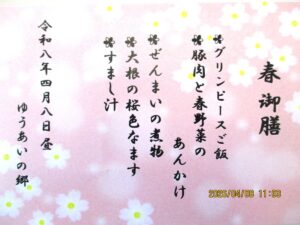 春御膳
※グリンピースご飯
※豚肉と春野菜の
あんかけ
※ぜんまいの煮物
※大根の桜色なます
※すまし汁
令和八年四月八日昼
ゆうあいの郷